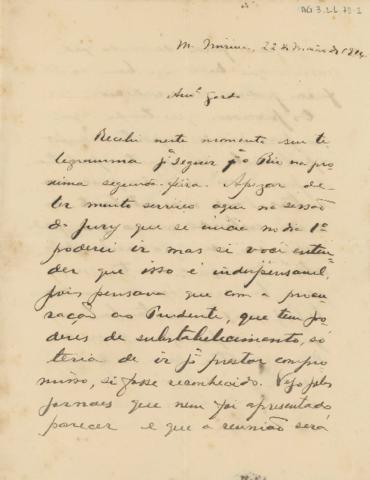 AG 3.1.6
M. Mirim, 22 de Maio de 18
Amº Gordo
Recebi neste momento seu te
legramma pª seguir pª o Rio na pro
xima segunda-feira. Apezar de
ter muito serviço aqui na sessão
do Jury que se inicia no dia 1º
poderei ir mas si você enten
der que isso é indispensavel,
pois pensava que com a procu
ração ao Prudente, que tem po
deres de substabelecimento, só
teria de ir pª prestar compro
misso, si fosse reconhecido. Vejo pelos
jornaes que nem foi apresentado
parecer e que a reunião será